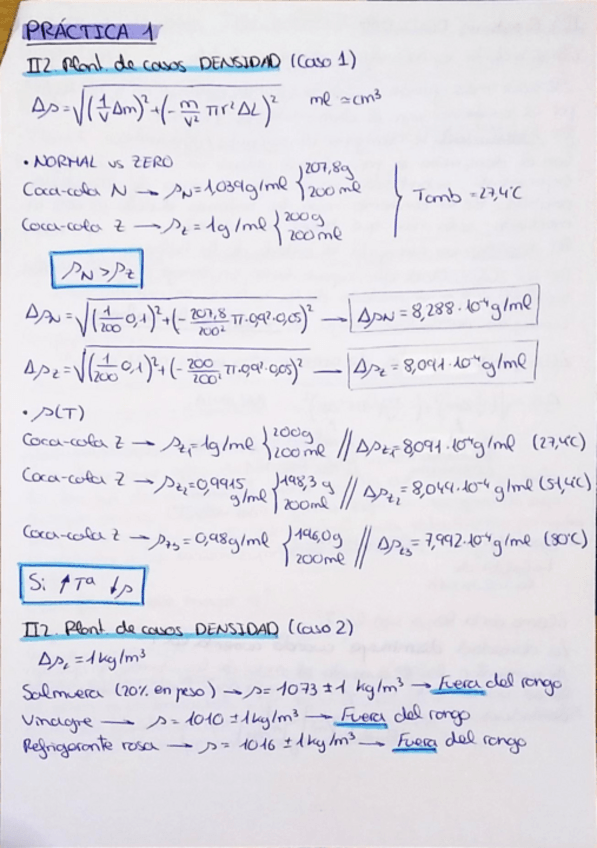 PRÁCTICA 1
II2. Plant. de casos DENSIDAD (Caso 1)
Δρ=√((1/V Δm)²+(-m/V² πr²ΔL)²  ml ≃ cm³
• NORMAL vs ZERO
Coca-cola N → ρN=1,039g/ml { 207,8g 200 ml
Coca-cola Z → ρz=1g/ml { 200g 200ml } Tamb = 27,4ºC
ρN>ρz
ΔρN=√((1/200 0,1)²+(-207,8/200² π·0,9²·0,05)² → ΔρN=8,288·10⁻⁴g/ml
Δρz=√((1/200 0,1)²+(-200/200² π·0,9²·0,05)² — Δρz=8,091·10⁻⁴g/ml
• ρ(T)
Coca-cola Z → ρz₁=1g/ml { 200g 200ml // Δρz₁=8091·10⁻⁴g/ml (27,4ºC)
Coca-cola Z → ρz₂=0,9915 g/ml { 198,3g 200ml // Δρz₂=8,044·10⁻⁴g/ml (51,4ºC)
Coca-cola Z → ρz₃=0,98g/ml { 196,0g 200ml // Δρz₃=7,992·10⁻⁴g/ml (80ºC)
Si ↑Tª ↓ρ
II2. Plant. de casos DENSIDAD (Caso 2)
ΔρL=1kg/m³
Salmuera (20% en peso) → ρ=1073±1 kg/m³ → Fuera del rango
Vinagre → ρ=1010±1kg/m³ → Fuera del rango
Refrigerante rosa → ρ=1016±1kg/m³ → Fuera del rango